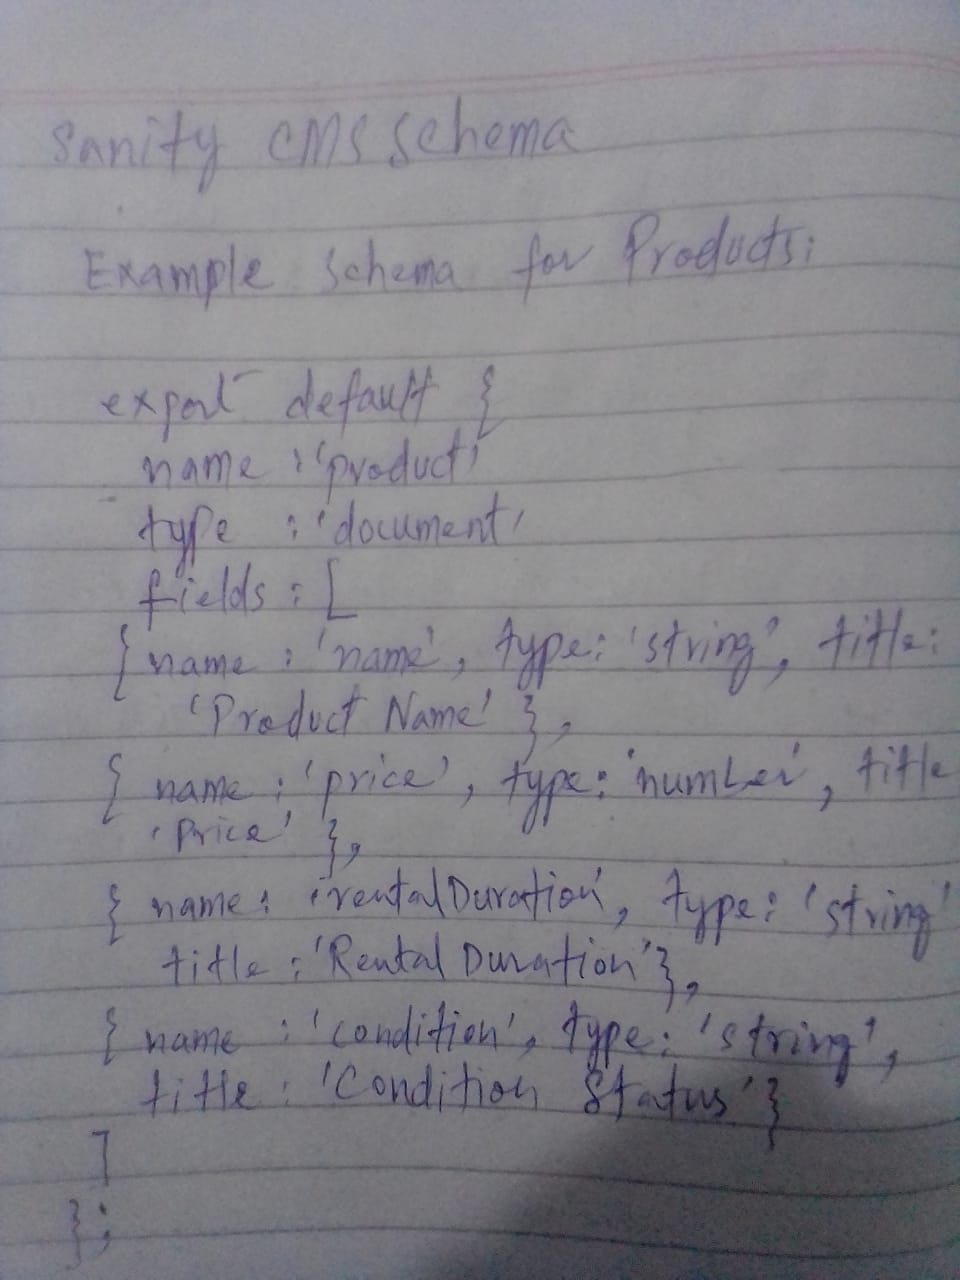 Sanity CMS Schema
Example Schema for Products:
export default {
name : 'product'
type : 'document'
fields : [
{ name : 'name', type : 'string', title :
'Product Name' },
{ name : 'price', type : 'number', title
'Price' },
{ name : 'rentalDuration', type : 'string'
title : 'Rental Duration' },
{ name : 'condition', type : 'string',
title : 'Condition Status' }
]
};